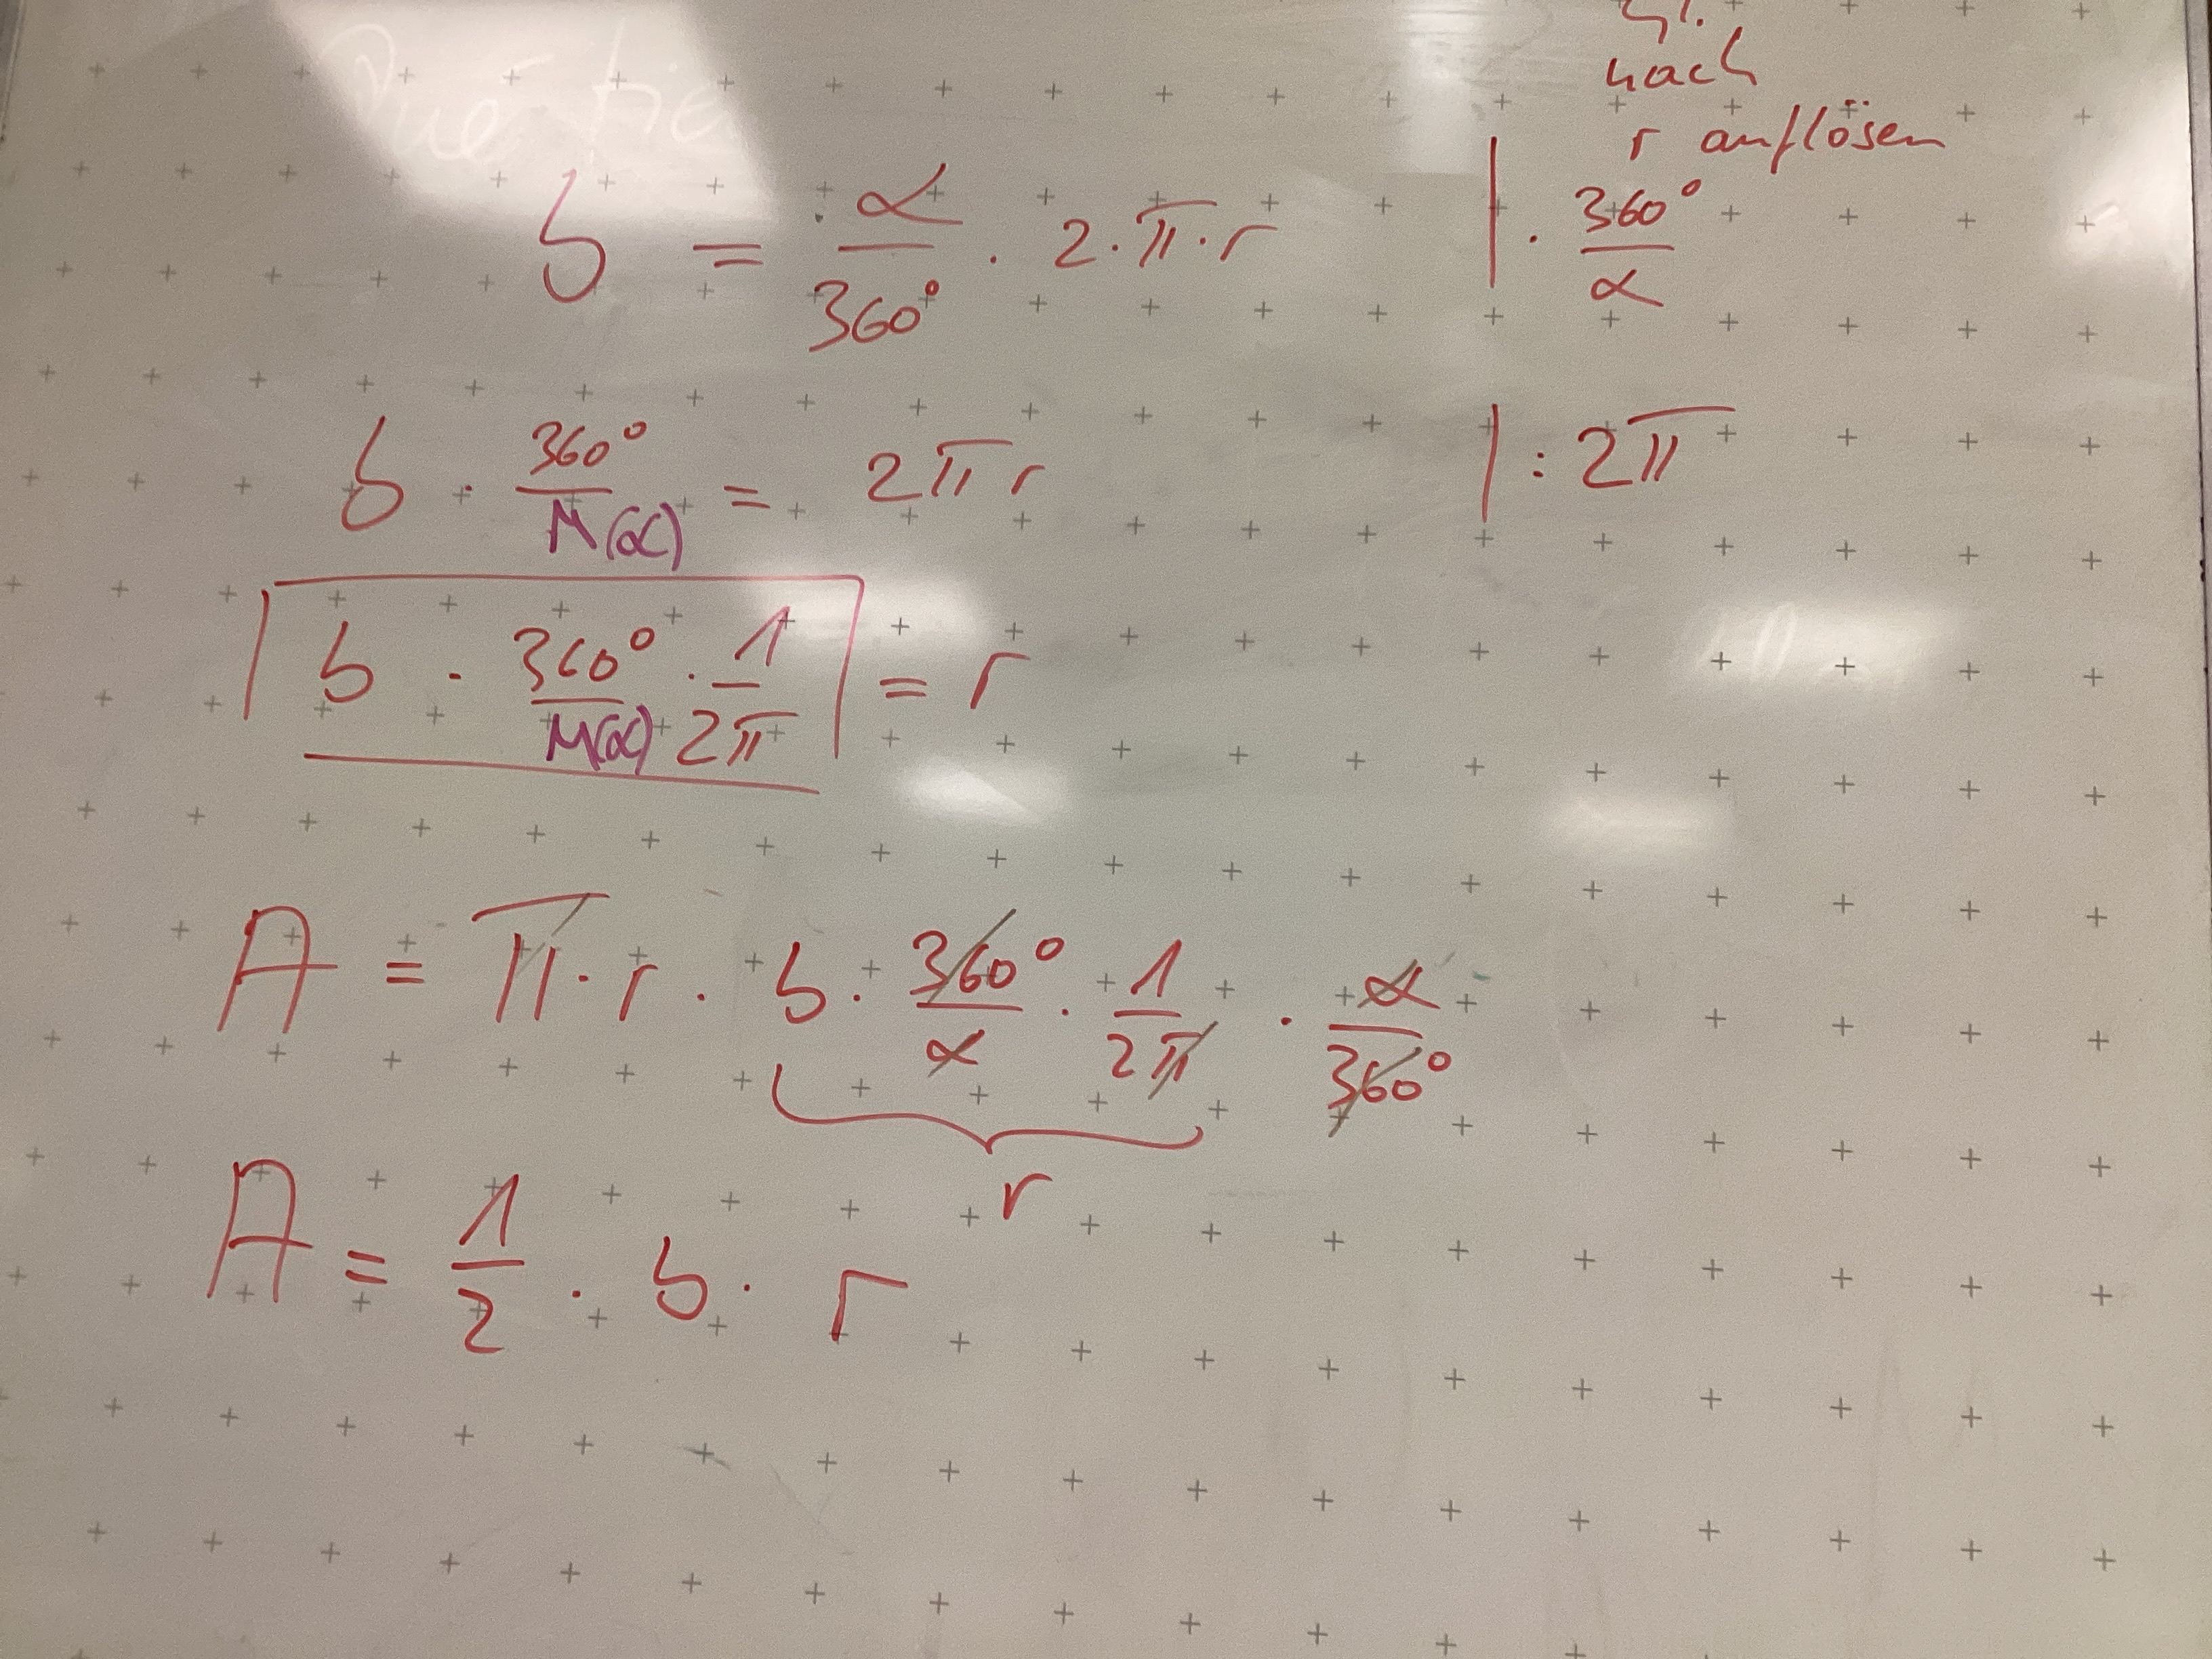 nach
r auflösen
b = α/360° · 2 · π · r | · 360°/α
b · 360°/M(α) = 2πr | : 2π
b · 360°/M(α) · 1/2π = r
A = π · r · b · 360°/α · 1/2π · α/360°
r
A = 1/2 · b · r